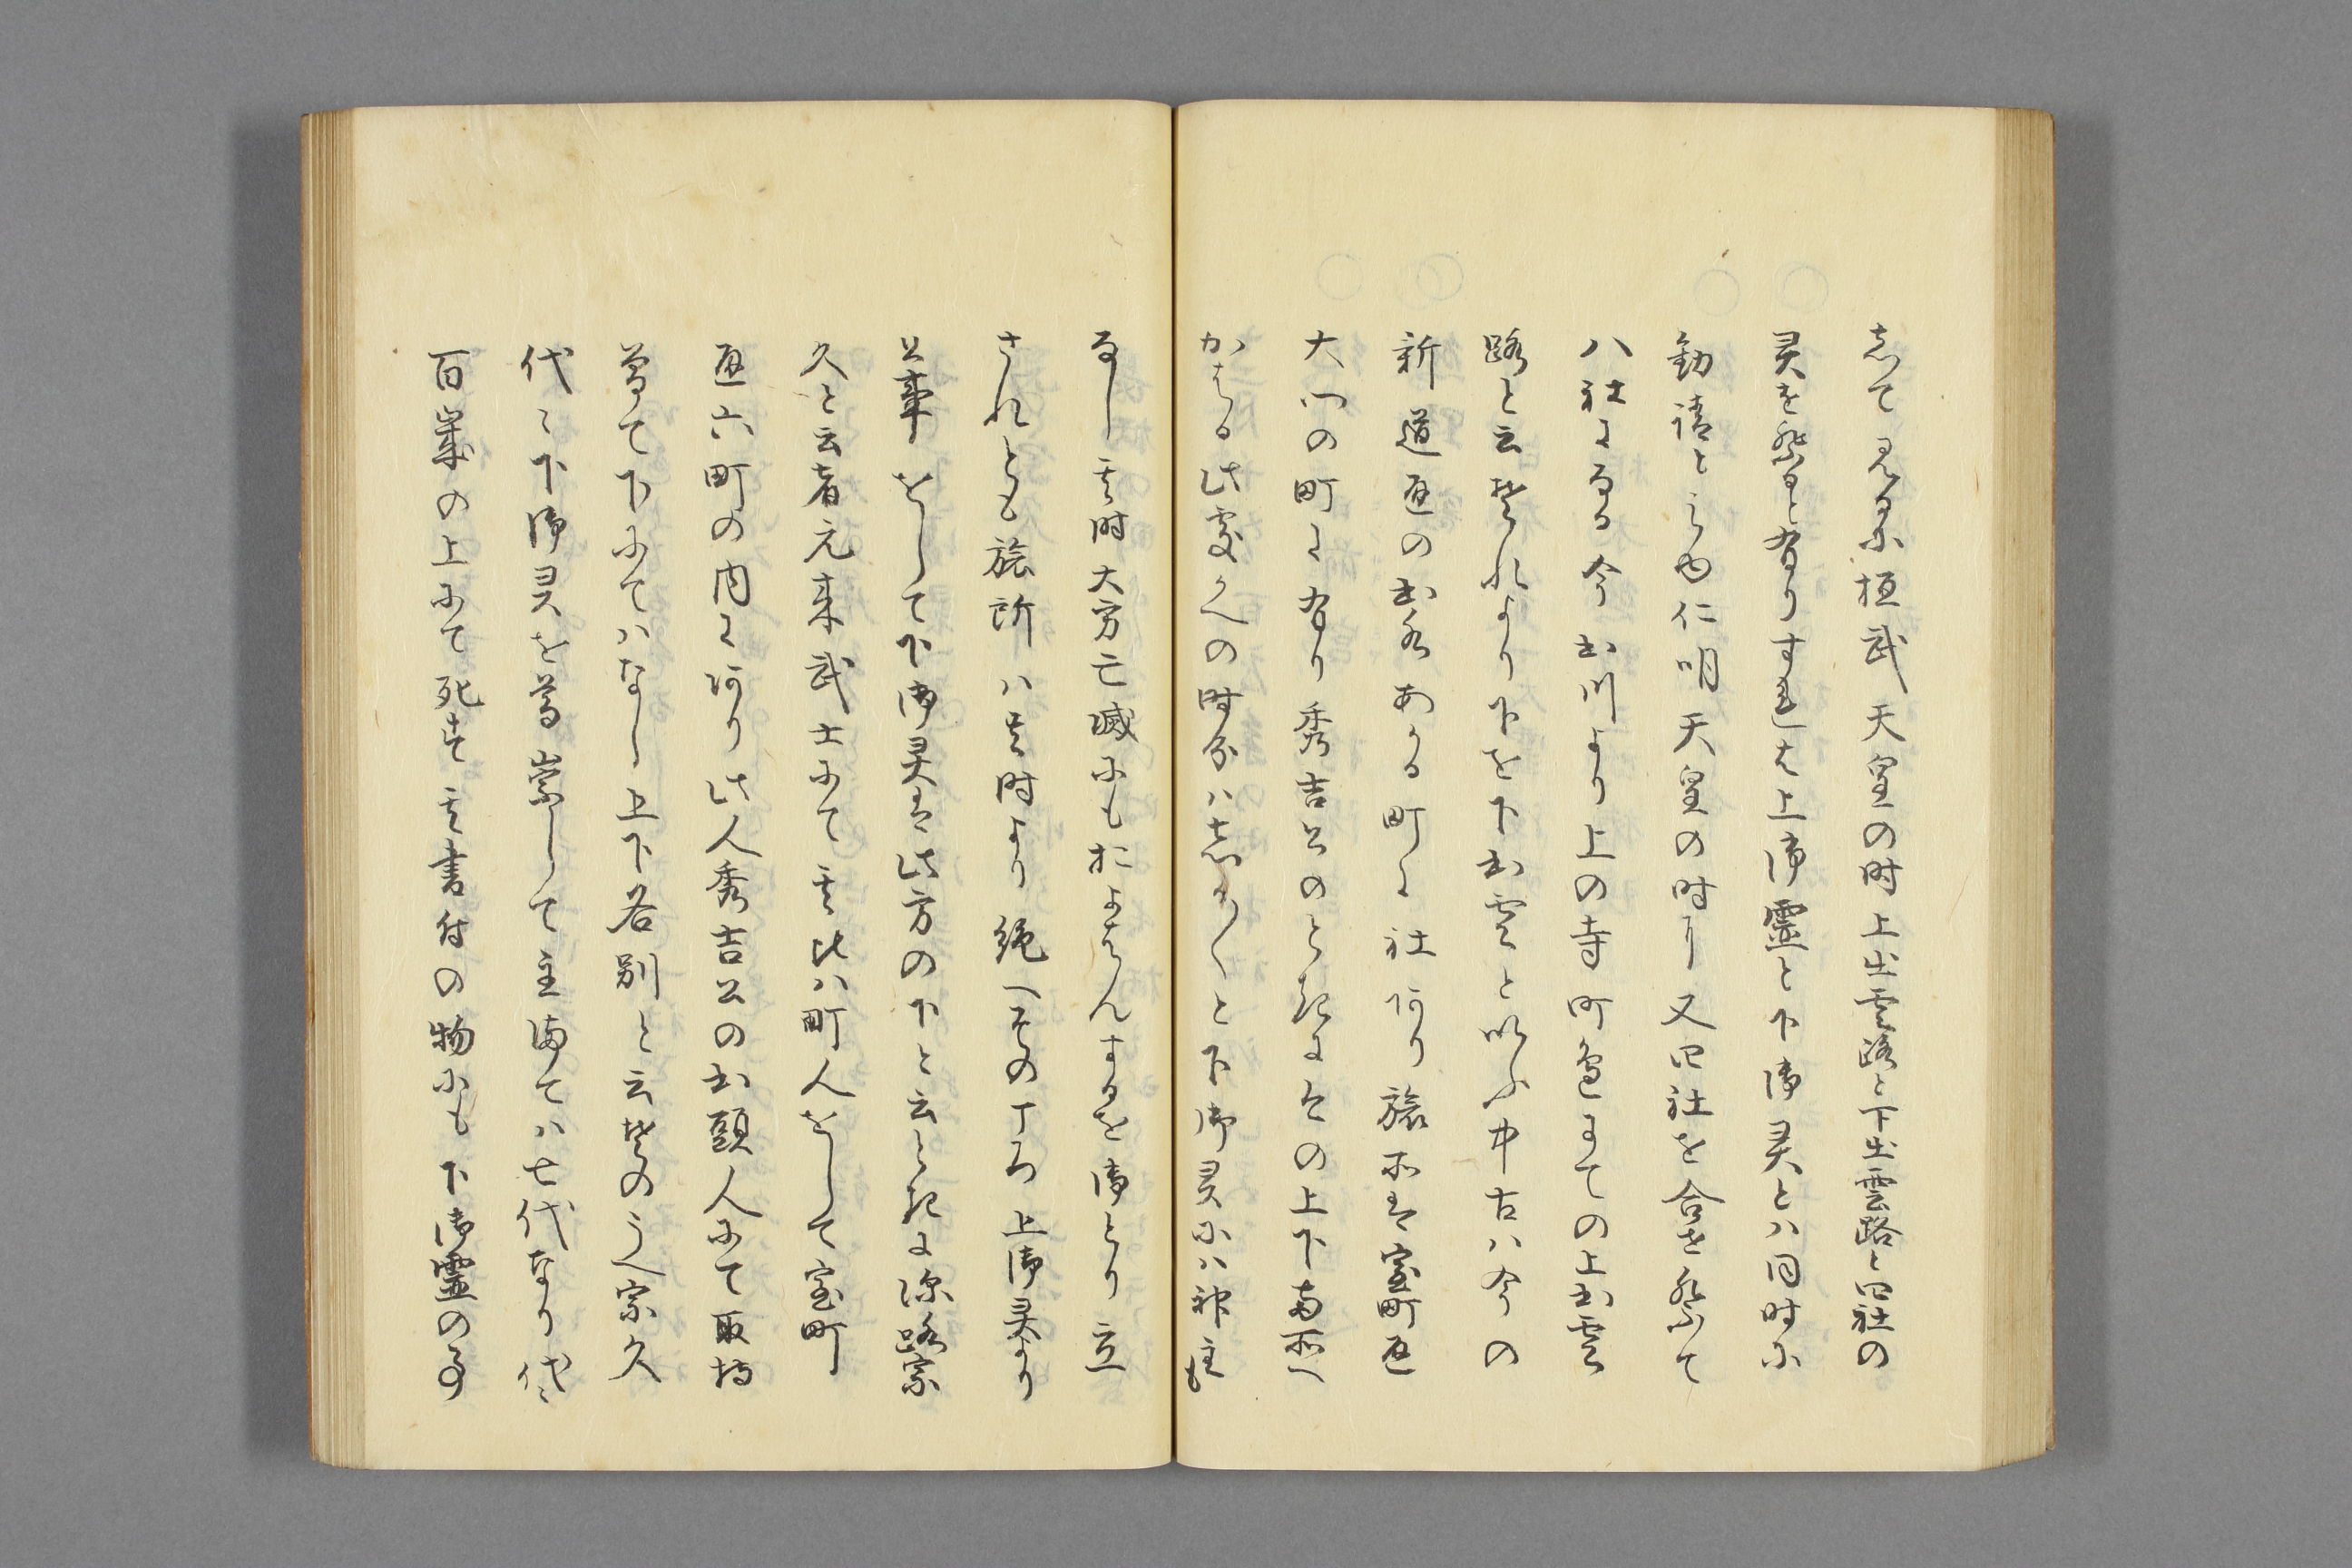 志て見るに桓武天皇の時上出雲路と下出雲路と四社の
灵を祭ると有りすれは上御霊と下御灵とハ同時に
勧請と云也仁明天皇の時に又四社を合せ祭て
八社になる今出川より上の寺町邊まての上出雲
路と云それより下を下出雲と以ふ中古ハ今の
新道通の出水あかる町に社阿り旅所は室町通
大門の町に有り秀吉公のとき今の上下両所へ
かはる此處かへの時分ハ志かと下御灵にハ神主
なし其時大方亡滅にもおよはんするを御とり立
されとも旅所ハ其時より絶へその丁ろ上御灵より
公事をして下御灵は此方の下と云とき深路宗
久と云者元来武士にて其比ハ町人をして室町
通六町の内に阿り此人秀吉公の出頭人にて取持
曽て下にてハなし上下各別と云其のうへ宗久
代々下御灵を尊崇して主海てハ七代なり代々
百歳の上にて死す其書付の物にも下御霊の事